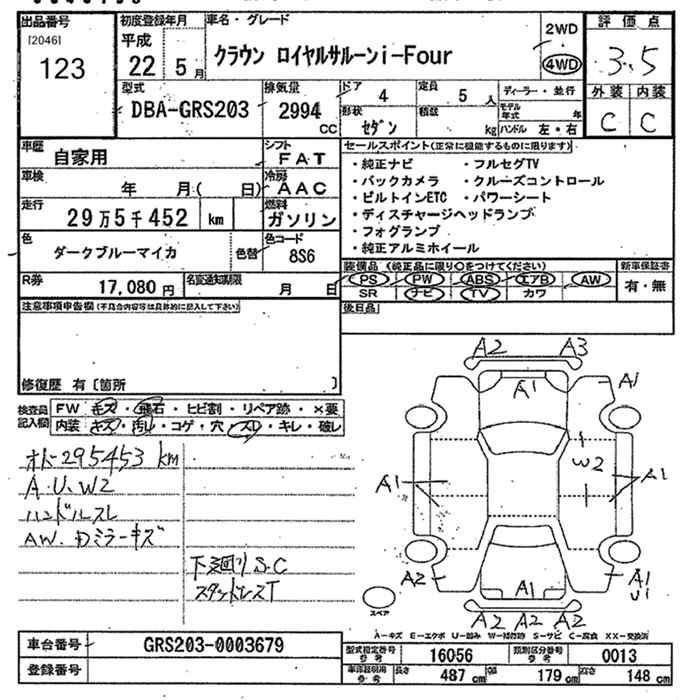 出品番号
[2046]
123
初度登録年月
平成
22 5月
車名・グレード
クラウン ロイヤルサルーンi-Four
2WD
4WD
評価点
3.5
外装 内装
C C
型式
DBA-GRS203
排気量
2994
CC
ドア
4
定員
5 人
形状
セダン
積載
kg
ディーラー・並行
モデル年式 年
ハンドル 左・右
車歴
自家用
シフト
FAT
車検
年 月( 日)
冷房
AAC
走行
29万5千452 km
燃料
ガソリン
色
ダークブルーマイカ
色替
色コード
8S6
R券
17,080 円
名変通知期限
月 日
セールスポイント(正常に機能するものに限ります)
・純正ナビ ・フルセグTV
・バックカメラ ・クルーズコントロール
・ビルトインETC ・パワーシート
・ディスチャージヘッドランプ
・フォグランプ
・純正アルミホイール
装備品 (純正品に限り○をつけてください)
新車保証書
PS PW ABS エアB AW
SR ナビ TV カワ
有・無
後日品
注意事項申告欄(不具合内容等は具体的に記入して下さい)
修復歴 有 〔箇所 〕
検査員記入欄
FW キズ・飛石・ヒビ割・リペア跡・×要
内装 キズ・汚れ・コゲ・穴・スレ・キレ・破レ
オドー295453 km
A.U.W2
ハンドルスレ
AW.Dミラーキズ
下廻りS.C
スタットレスT
A2 A3
A1 A1
W2
A1 A1
A2 A1 A1
U1
A2 A2 A2
スペア
A-キズ E-エクボ U-凹み W-補修跡 S-サビ C-腐食 XX-交換済
車台番号
GRS203-0003679
登録番号
型式指定番号
参考
16056
類別区分番号
参考
0013
車両証明用
参考
長さ
487 cm
幅
179 cm
高さ
148 cm